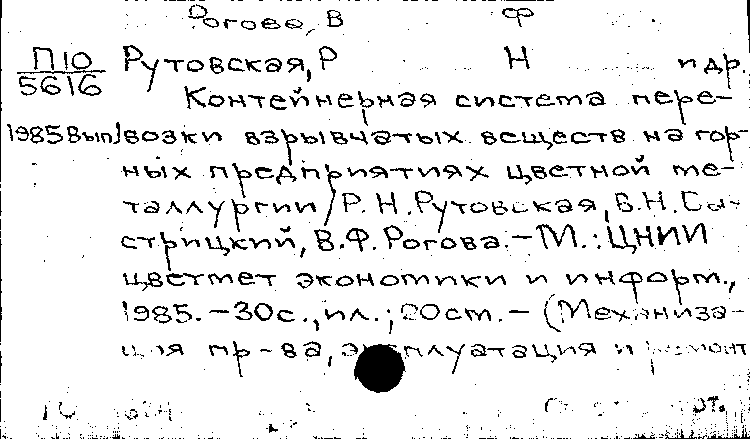 Рогова, В Ф
П10 Рутовская, Р Н и др.
5616 Контейнерная система пере-
1985 Вып1 возки взрывчатых веществ на гор-
ных предприятиях цветной ме-
таллургии / Р. Н. Рутовская, В. Н.
стрицкий, В. Ф. Рогова. - М. : ЦНИИ
цветмет экономики и информ.,
1985. - 30 с., ил. ; 20 см. - (Механиза-
ция пр-ва, эксплуатация и ремонт